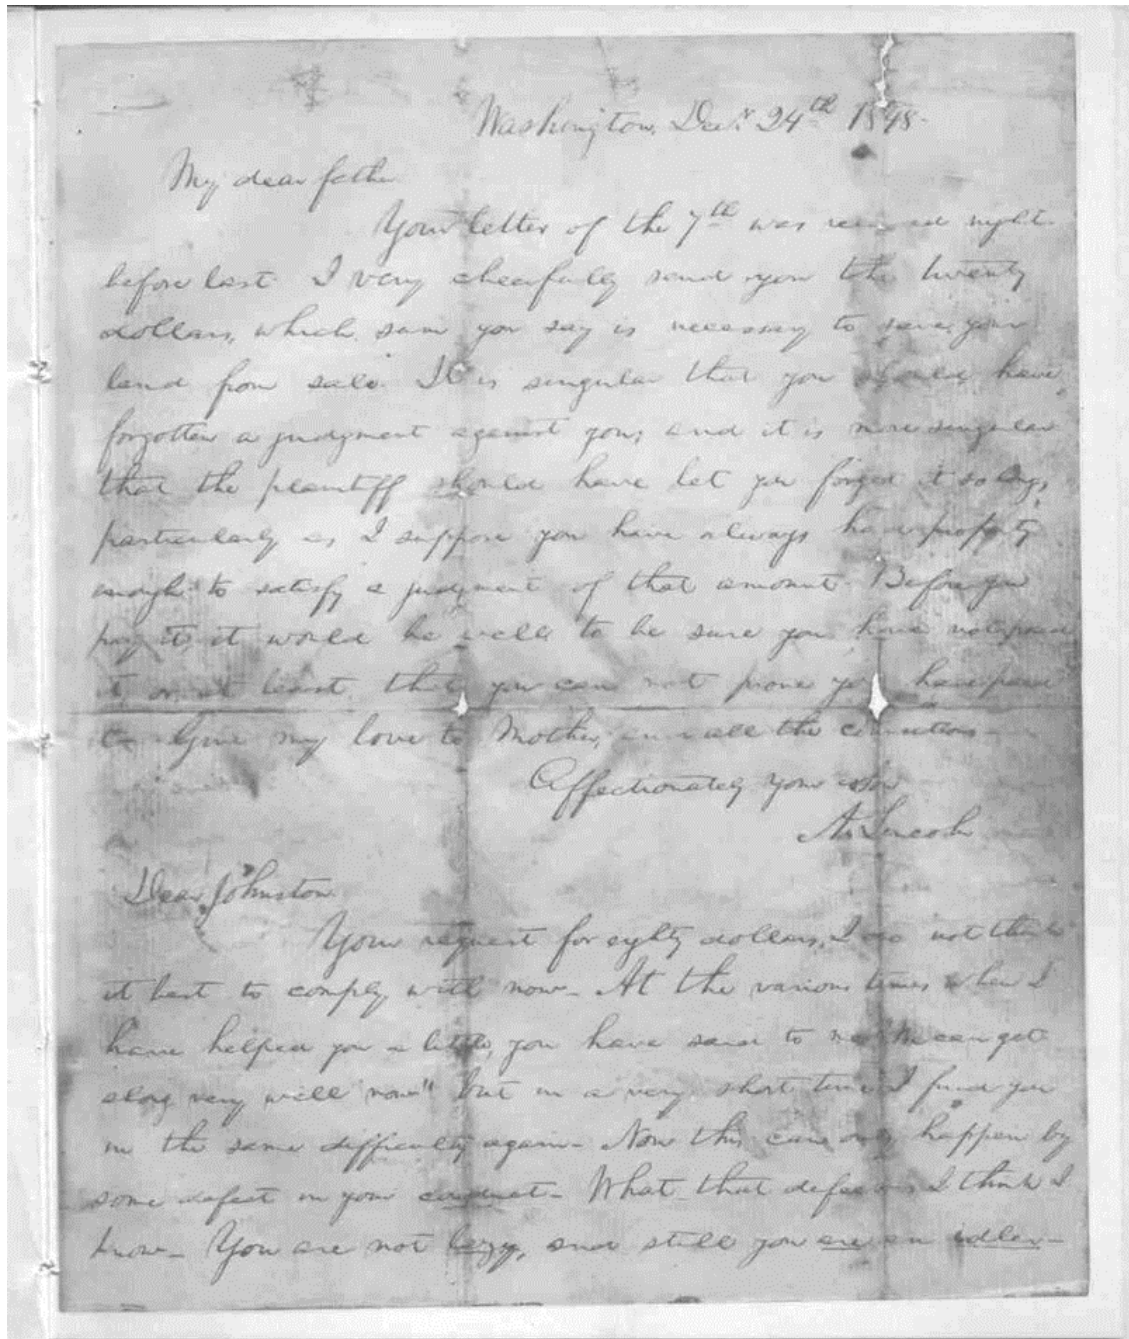 Washington, Decr. 24th 1848-
My dear father
Your letter of the 7th was received night
before last. I very cheerfully send you the twenty
dollars, which sum you say is necessary to save your
land from sale. It is singular that you should have
forgotten a judgment against you; and it is more singular
that the plaintiff should have let you forget it so long,
particularly as I suppose you have always had property
enough to satisfy a judgment of that amount. Before you
pay it, it would be well to be sure you have not paid
it, or, at least, that you can not prove you have paid
it- Give my love to Mother, and all the connections-
Affectionately your son
A. Lincoln
Dear Johnston
Your request for eighty dollars, I do not think
it best to comply with now- At the various times when I
have helped you a little, you have said to me "We can get
along very well now" but in a very short time I find you
in the same difficulty again- Now this can only happen by
some defect in your conduct- What that defect is I think I
know- You are not lazy, and still you are an idler-